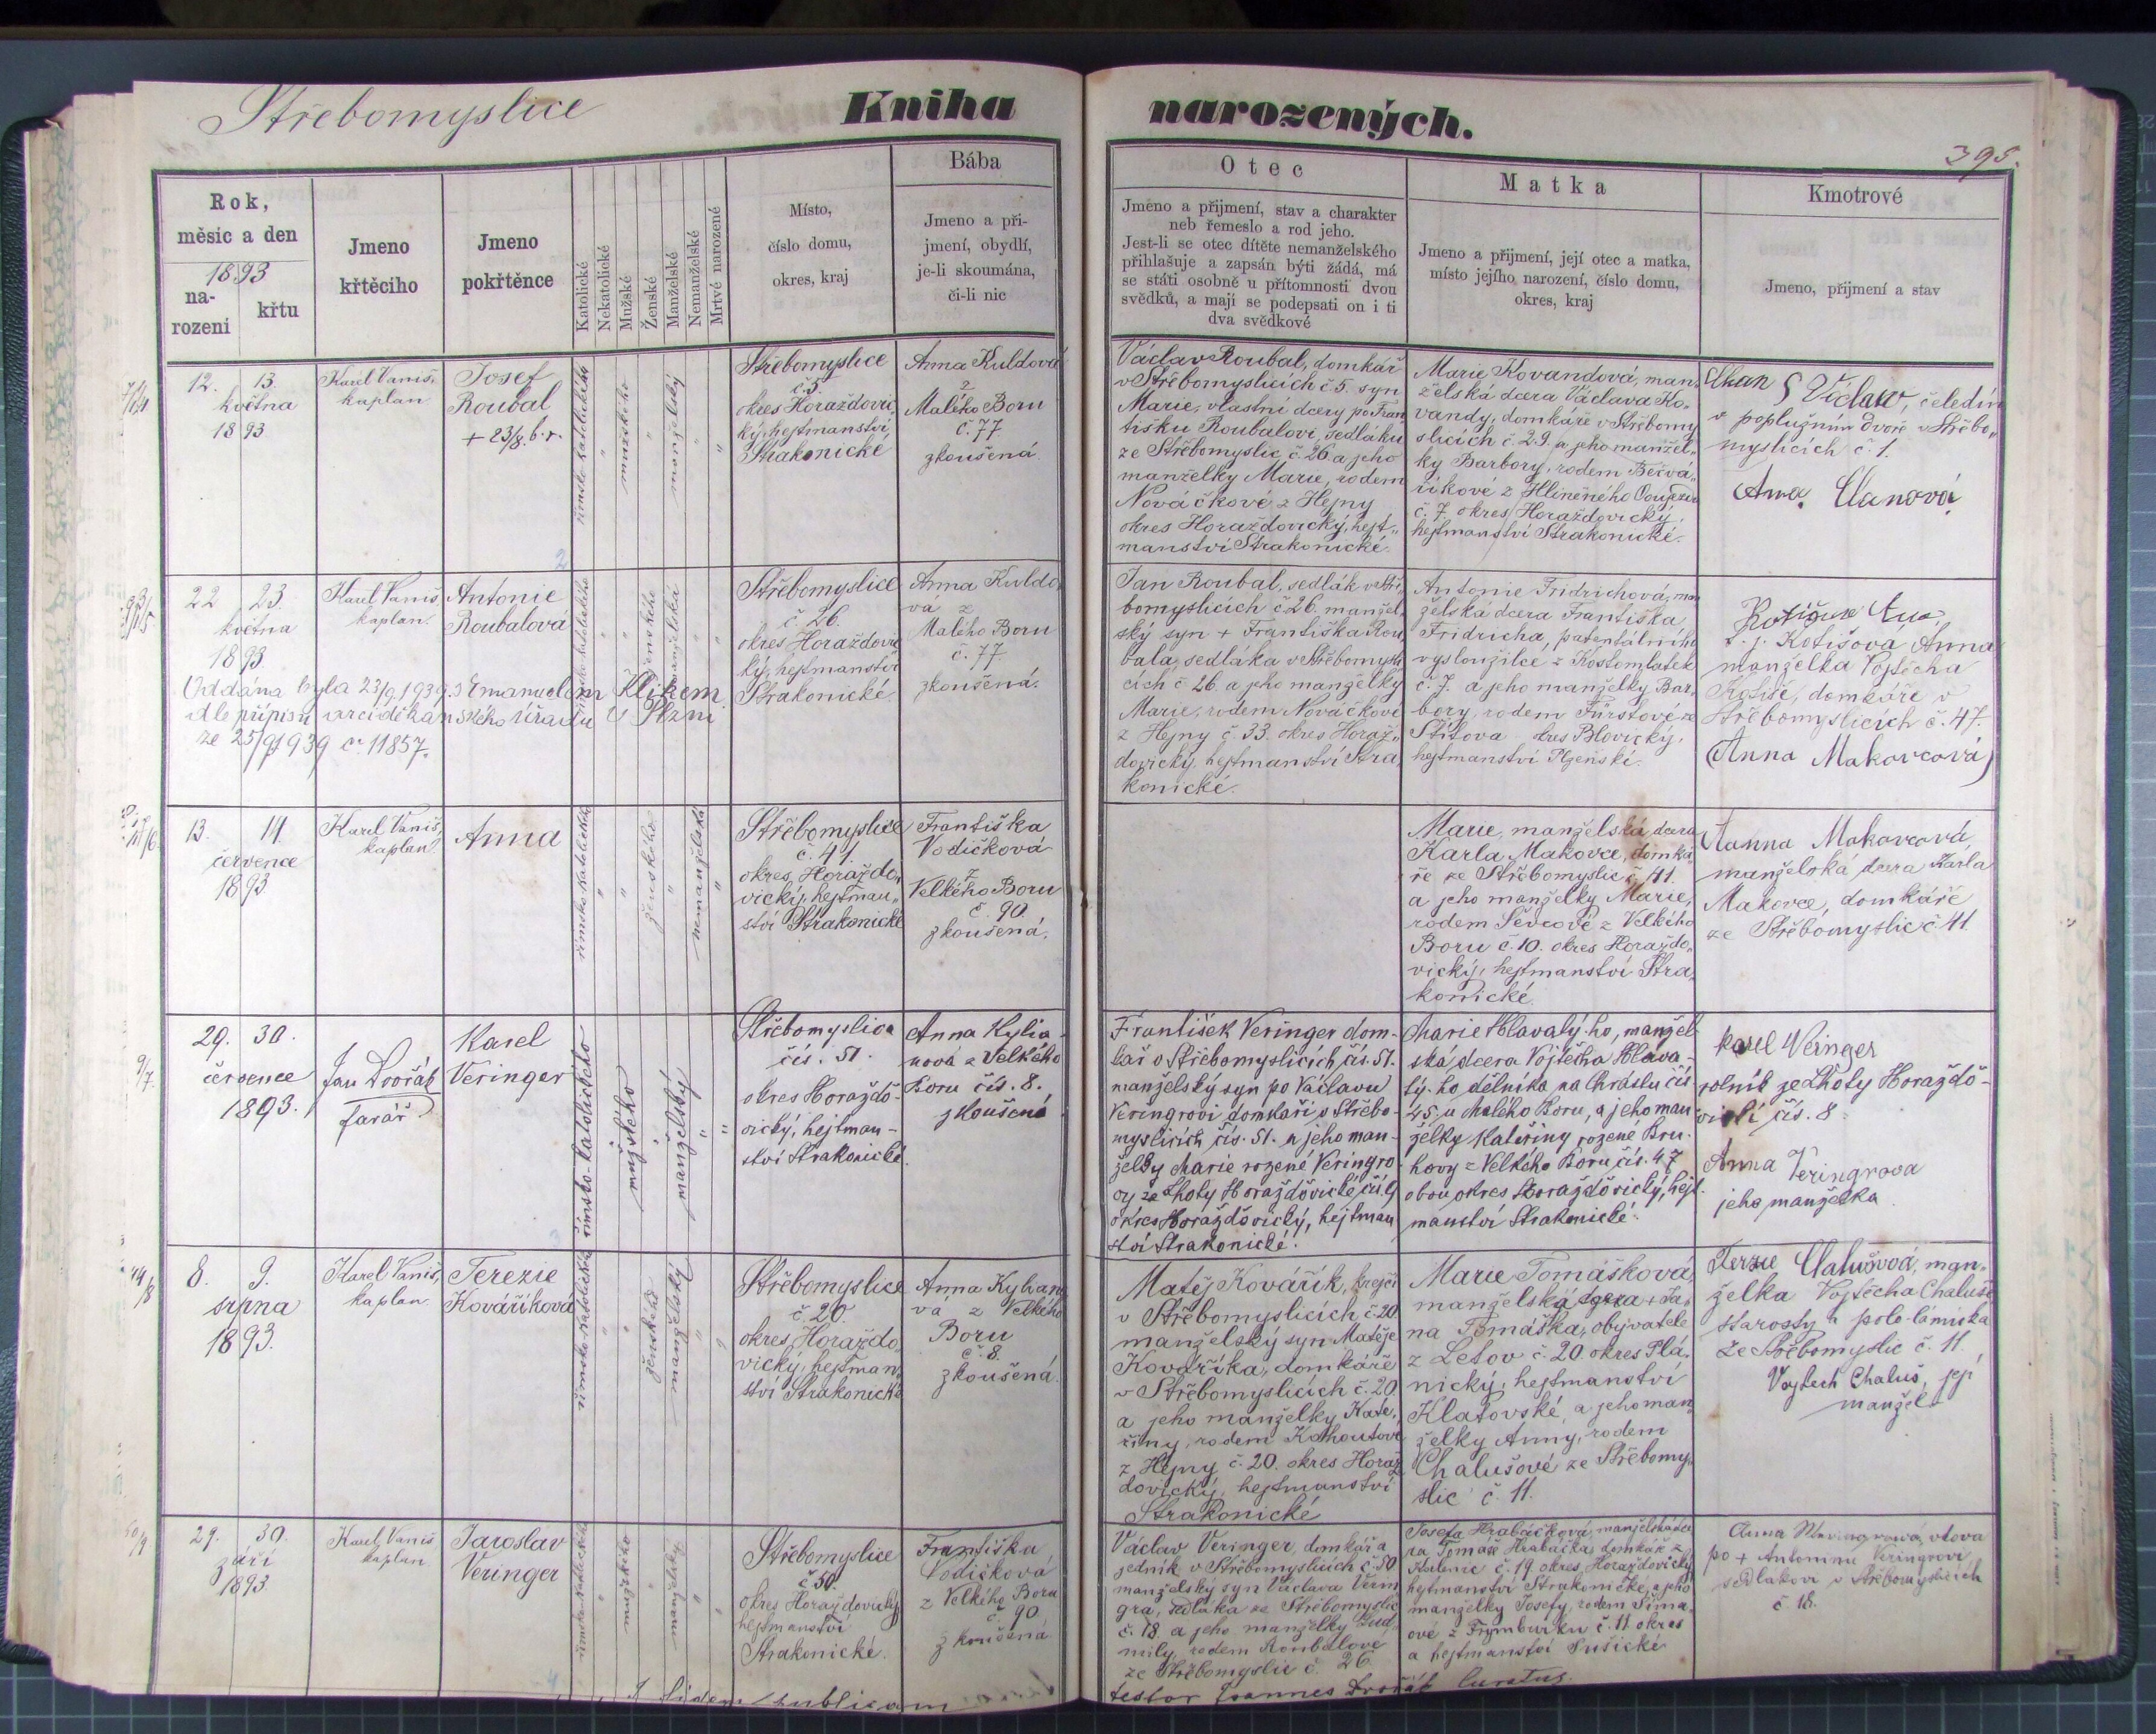 Střebomyslice
Kniha narozených.
395.
Rok,
měsic a den
1893
na-
rození
křtu
Jmeno
křtěcího
Jmeno
pokřtěnce
Katolické
Nekatolické
Mužské
Ženské
Manželské
Nemanželské
Mrtvě narozené
Místo,
číslo domu,
okres, kraj
Bába
Jmeno a při-
jmení, obydlí,
je-li skoumána,
či-li nic
Otec
Jméno a přijmení, stav a charakter
neb řemeslo a rod jeho.
Jest-li se otec dítěte nemanželského
přihlašuje a zapsán býti žádá, má
se státi osobně u přítomnosti dvou
svědků, a mají se podepsati on i ti
dva svědkové
Matka
Jmeno a přijmení, její otec a matka,
místo jejího narození, číslo domu,
okres, kraj
Kmotrové
Jmeno, přijmení a stav
12. 13.
května
1893
Karel Vaniš,
kaplan
Josef
Roubal
+ 23/8. b. r.
římsko-katolického
mužského
manželský
Střebomyslice
č 5.
okres Horažďovi,
ký, hejtmanství
Strakonické
Anna Kuldová
z
Malého Boru
č. 77
zkoušená
Václav Roubal, domkář
v Střebomyslicích č 5. syn
Marie, vlastní dcery po Fran
tišku Roubalovi, sedláku
ze Střebomyslic č. 26 a jeho
manželky Marie, rodem
Nováčkové z Hejny
okres Horažďovický, hejt„
manství Strakonické.
Marie Kovandová, man„
želská dcera Václava Ko„
vandy, domkáře v Střebomy
slicích č 29. a jeho manžel„
ky Barbory, rodem Bečvá„
říkové z Hliněného Oujezda
č. 7. okres Horažďovický,
hejtmanství Strakonické.
Václav, čeledín
v poplužním dvoře v Střebo„
myslicích č. 1.
Anna
22 23.
května
1893.
Karel Vaniš,
kaplan.
Antonie
Roubalová
Oddána byla 23/9. 1939. s Emanuelem Klikem
dle přípisu arciděkanského úřadu v Plzni
ze 25/9 1939 č. 11857.
římsko-katolického
ženského
manželská
Střebomyslice
č. 26.
okres Horažďovic
ký, hejtmanství
Strakonické
Anna Kuldo„
va z
Malého Boru
č. 77
zkoušená.
Jan Roubal, sedlák v Stře„
bomyslicích č 26. manžel„
ský syn + Františka Rou„
bala, sedláka v Střebomysli
cích č 26. a jeho manželky
Marie, rodem Nováčkové
z Hejny č. 33. okres Horaž„
dovický, hejtmanství Stra„
konické.
Antonie Fridrichová, man
želská dcera Františka
Fridricha, patentálního
vysloužilce z Kostomlatek
č. 7. a jeho manželky Bar„
bory, rodem Fürstové ze
Štítova okres Blovický,
hejtmanství Plzeňské.
Kotišova Anna
manželka Vojtěcha
Kotiše, domkáře v
Střebomyslicích č. 47.
(Anna Makovcová)
13. 14.
července
1893
Karel Vaniš,
kaplan
Anna
římsko-katolického
ženského
nemanželská
Střebomyslice
č. 41.
okres, Horažďo„
vický, hejtman„
ství Strakonické
Františka
Vodičková
z
Velkého Boru
č. 90.
zkoušená.
Marie, manželská dcera
Karla Makovce, domká„
ře ze Střebomyslic č. 41.
a jeho manželky Marie,
rodem Ševcové z Velkého
Boru č. 10. okres Horažďo„
vický, hejtmanství Stra„
konické.
Anna Makovcová,
manželská dcera Karla
Makovce, domkáře
ze Střebomyslic č 41.
29. 30.
července
1893.
Jan Dvořák
farář
Karel
Veringer
římsko-katolického
mužského
manželský
Střebomyslice
čís. 51.
okres Horažďo-
vický, hejtman-
ství Strakonické.
Anna Kylia-
nová z Velkého
Boru čís. 8.
zkoušená
František Veringer dom-
kář v Střebomyslicích čís. 51.
manželský syn po Václavu
Veringrovi domkáři v Střebo-
myslicích čís. 51. a jeho man-
želky Marie rozené Veringro-
vy ze Lhoty Horažďovické čís. 9
okres Horažďovický, hejtman
ství Strakonické.
Marie Hlavatý-ho, manžel-
ská dcera Vojtěcha Hlava-
tý-ho dělníka na Chrástu čís.
45. u Malého Boru, a jeho man-
želky Kateřiny rozené Bru-
hovy z Velkého Boru čís. 47
obou okres Horažďovický, hejt-
manství Strakonické.
Karel Veringer
rolník ze Lhoty Horažďo-
vické čís. 8.
Anna Veringrova
jeho manželka
8. 9.
srpna
1893.
Karel Vaniš,
kaplan.
Terezie
Kováříková
římsko-katolického
ženského
manželský
Střebomyslice
č. 20.
okres, Horažďo„
vický, hejtman„
ství Strakonické
Anna Kylian
va z Velkého
Boru
č. 8.
zkoušená.
Matěj Kovářík, krejčí
v Střebomyslicích, č. 20.
manželský syn Matěje
Kováříka, domkáře
v Střebomyslicích č. 20.
a jeho manželky Kate„
řiny, rodem Kohoutové
z Hejny č. 20. okres Horaž„
dovický, hejtmanství
Strakonické
Marie Tomášková,
manželská dcera + Ja„
na Tomáška, obyvatele
z Letov č. 20. okres Plá„
nický, hejtmanství
Klatovské, a jeho man„
želky Anny, rodem
Chalušové ze Střebomy„
slic č. 11.
Terzie Chalušová, man„
želka Vojtěcha Chaluše
starosty a polo-lánníka
ze Střebomyslic č. 11.
Vojtech Chaluš, její
manžel
29. 30.
září
1893.
Karel Vaniš
kaplan
Jaroslav
Veringer
římsko-katolického
mužského
manželský
Střebomyslice
č 50.
okres Horažďovický
hejtmanství
Strakonické.
Františka
Vodičková
z Velkého Boru
č. 90.
zkoušená
Václav Veringer, domkář a
zedník v Střebomyslicích č. 50
manželský syn Václava Verin
gra, sedláka ze Střebomyslic
č. 18 a jeho manželky Lud„
mily, rodem Roubalove
ze Střebomyslic č. 26.
Josefa Hrabáčková, manželská dce
ra Tomáše Hrabáčka, domkáře z
č. 19. okres, Horažďovický
hejtmanství Strakonické, a jeho
manželky Josefy, rodem Šima„
ové z Frymburku č. 11. okres
a hejtmanství Sušické
Anna Veringrová, vdova
po + Antonínu Veringrovi
sedlákovi v Střebomyslicích
č. 18.
fidem publicam
testor Joannes Dvořák Curatus.